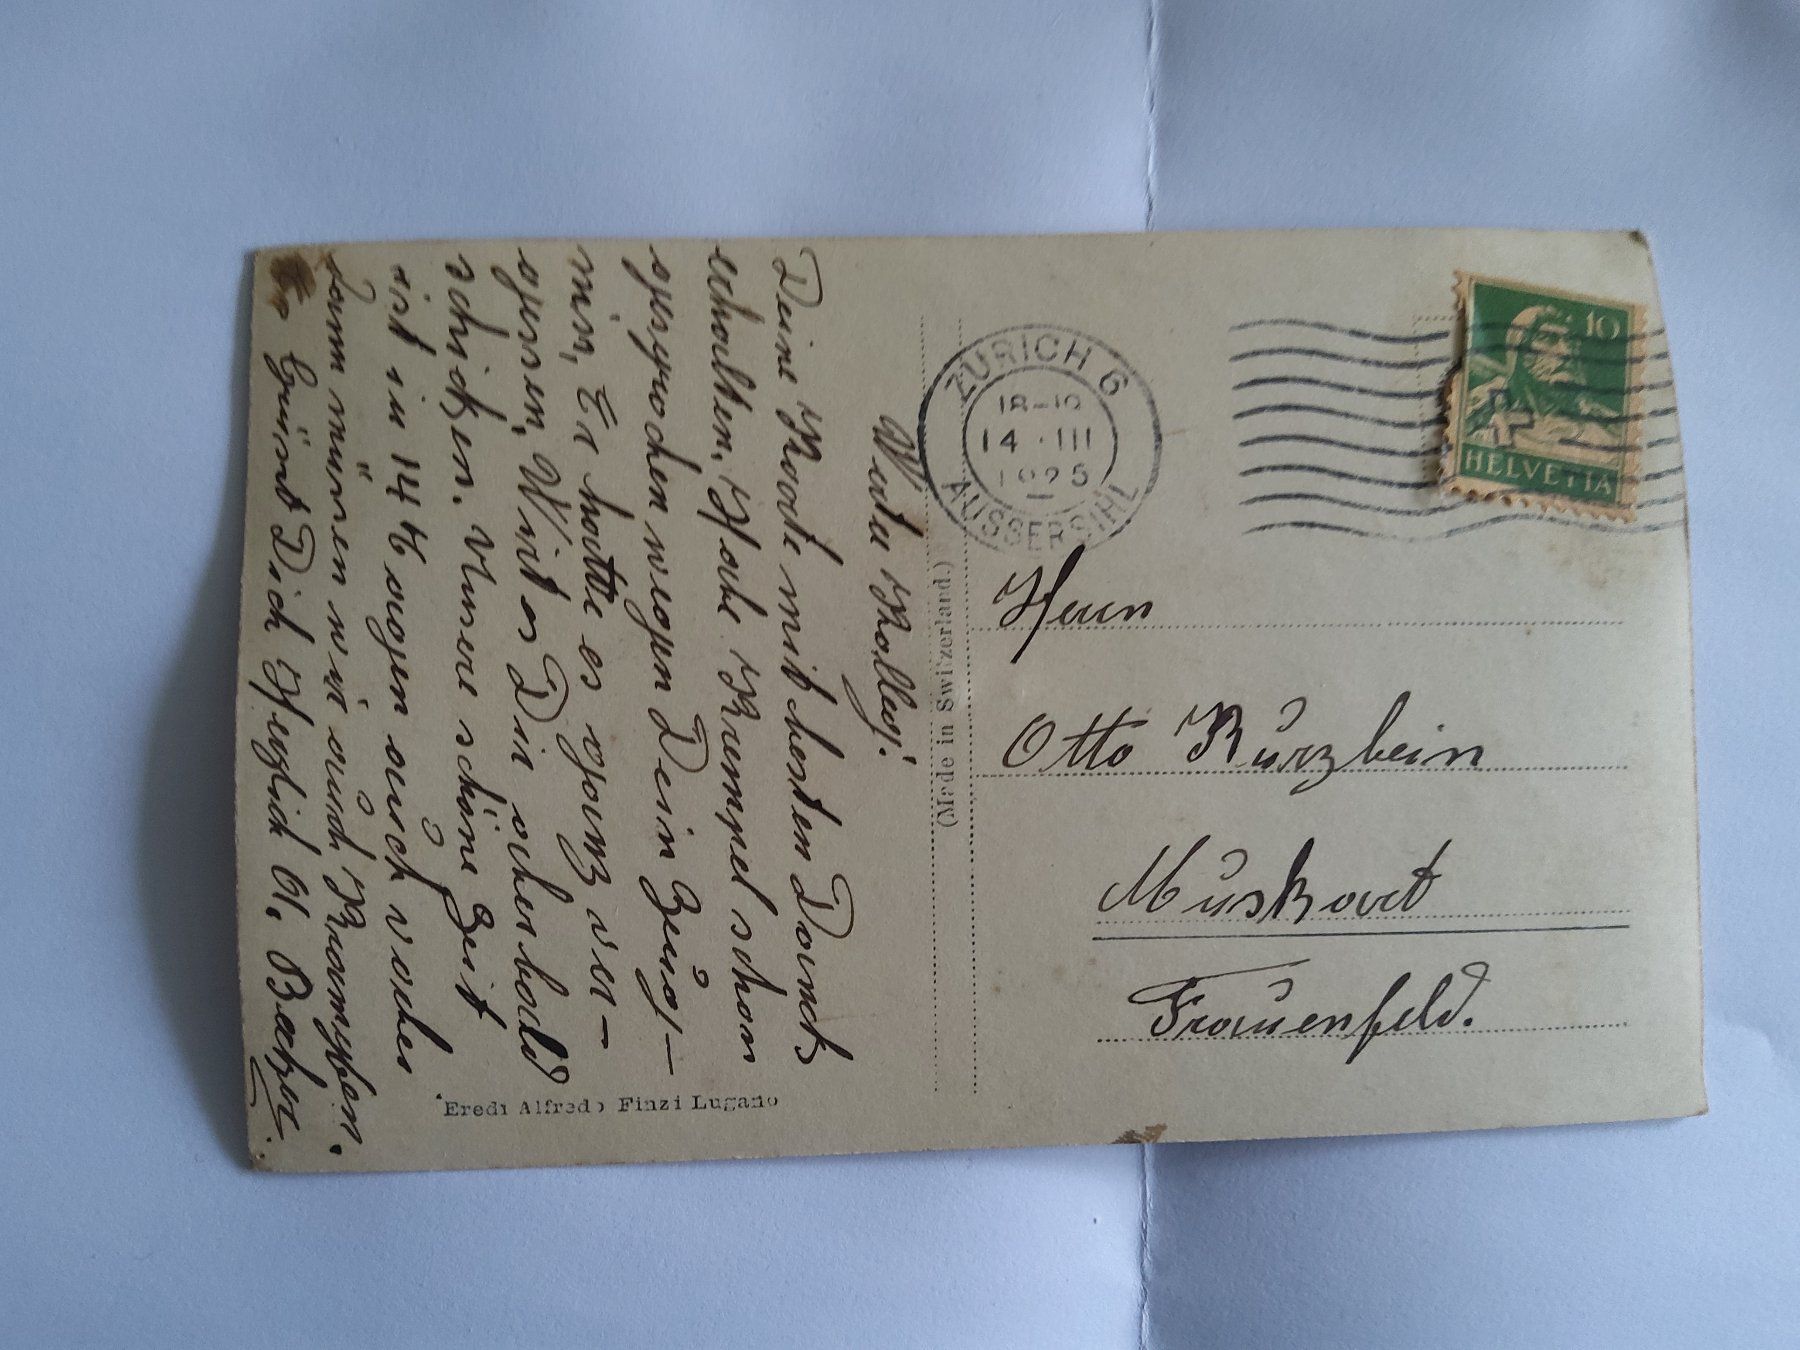 Werter Kolleg!
Deine Karte mit besten Dank
erhalten. Habe Krempel schon
gesprochen wegen Dein Zeug-
nis, Er hatte es ganz ver-
gessen, Wird es Dir aber bald
schicken. Unsere schöne Zeit
ist in 14 Tagen auch vorbei
dann müssen wir auch Krampfen.
Es Grüsst Dich Herzlich A.
Eredi Alfredo Finzi Lugano
(Made in Switzerland.)
ZÜRICH 6
18-19
14.III
1925
AUSSERSIHL
10
HELVETIA
Herrn
Otto Kürzbein
Frauenfeld.